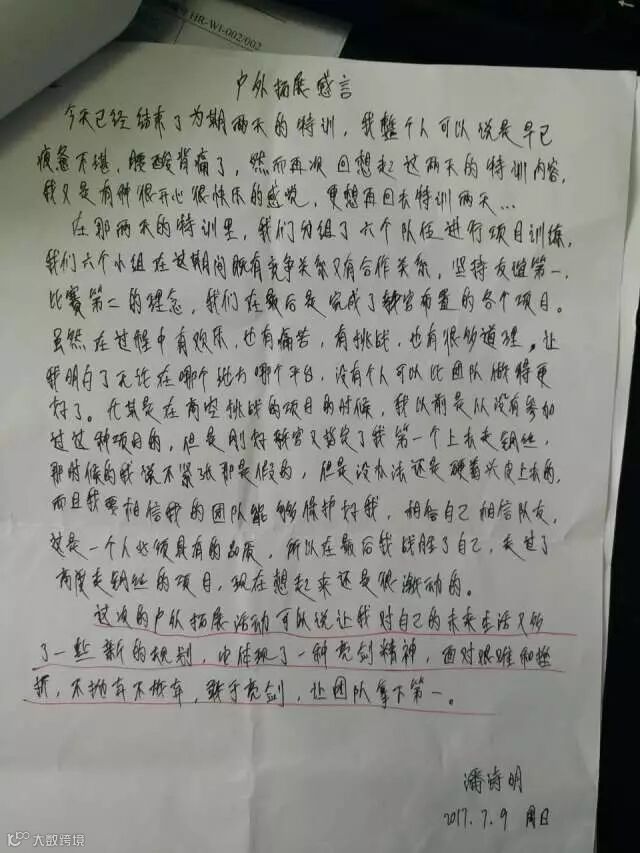 HR-WI-002/002
户外拓展感言
今天已经结束了为期两天的特训，我整个人可以说是早已
疲惫不堪，腰酸背痛了，然而再次回想起这两天的特训内容，
我又是有种很开心很快乐的感觉，更想再回去特训两天...
在那两天的特训里，我们分组了六个队伍进行项目训练，
我们六个小组在这期间既有竞争关系又有合作关系，坚持友谊第一，
比赛第二的理念，我们在最后是完成了教官布置的各个项目。
虽然在过程中有欢乐，也有痛苦，有挑战，也有很多道理。让
我明白了无论在哪个地方哪个平台，没有个人可以比团队做得更
好了。尤其是在高空挑战的项目的时候，我以前是从没有参加
过这种项目的，但是刚好教官又指定了我第一个上去走钢丝，
那时候的我说不紧张那是假的，但是没办法还是硬着头皮上去的，
而且我要相信我的团队能够保护好我，相信自己相信队友，
这是一个人必须具有的品质，所以在最后我战胜了自己，走过了
高度走钢丝的项目，现在想起来还是很激动的。
这次的户外拓展活动可以说让我对自己的未来生活又多
了一些新的规划，也体现了一种亮剑精神，面对艰难和挫
折，不抛弃不放弃，敢于亮剑，让团队拿下第一。
潘诗明
2017.7.9 周日
大数跨境